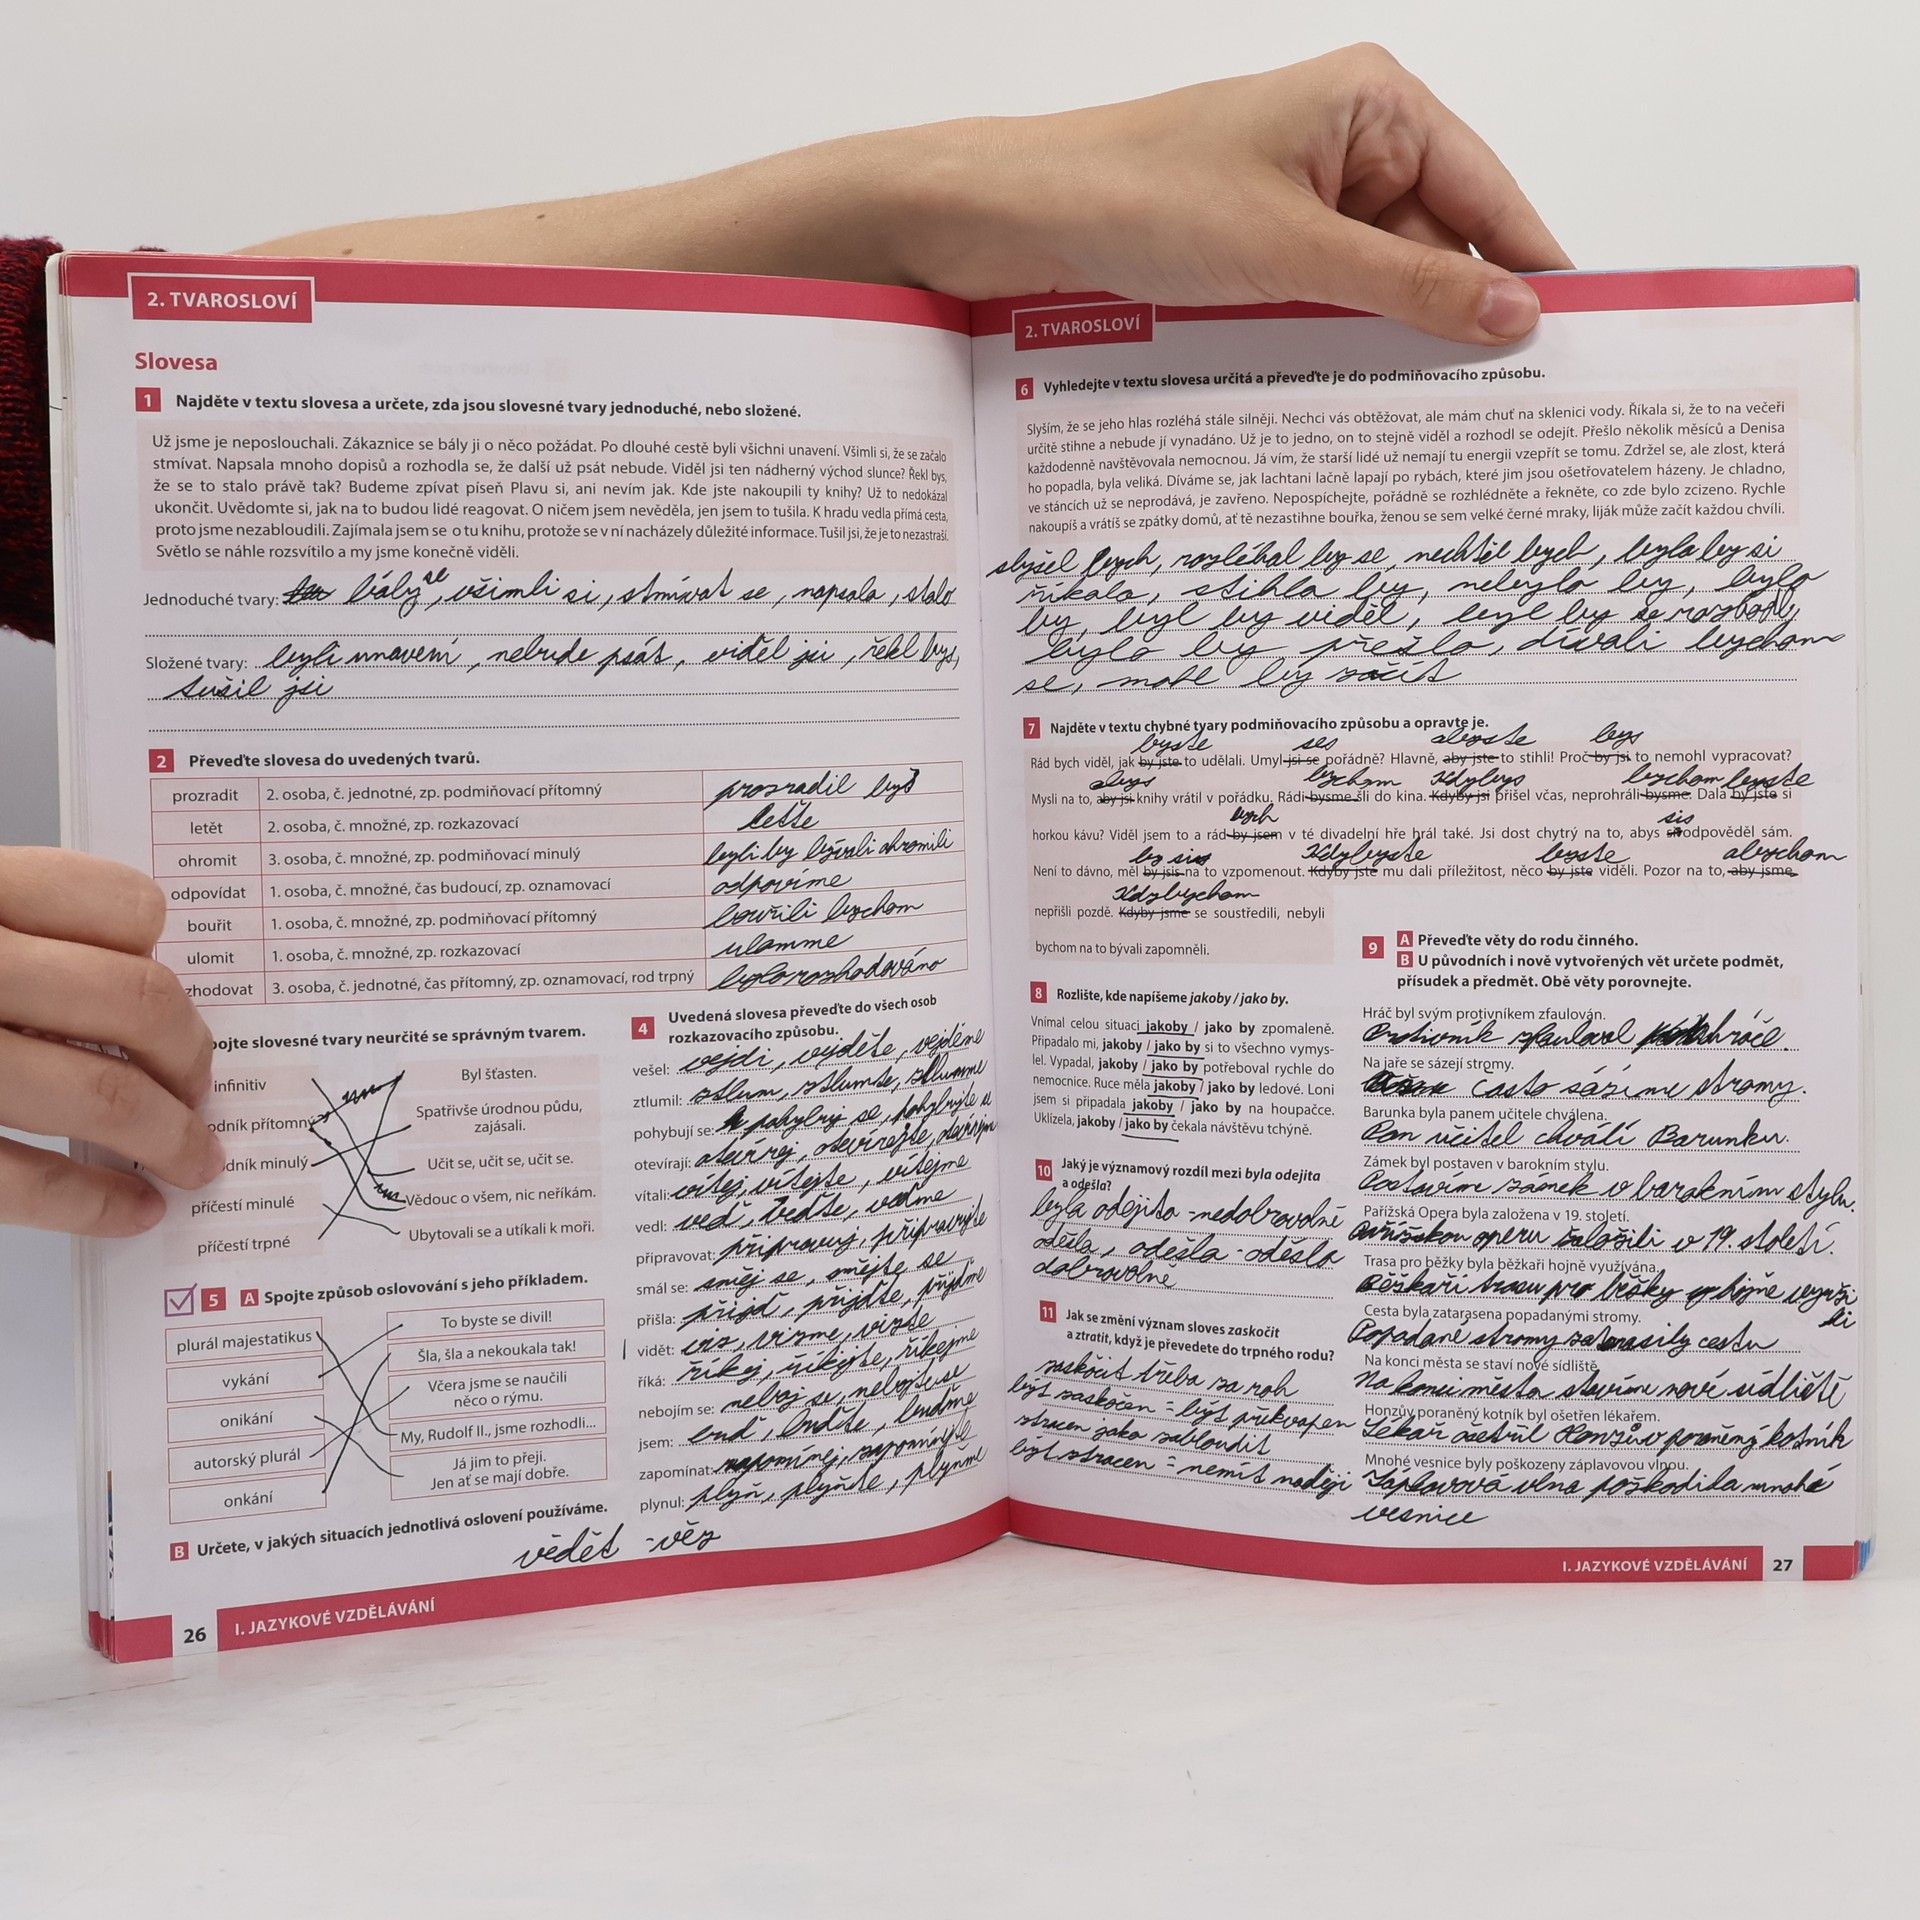 2. TVAROSLOVÍ
Slovesa
1 Najděte v textu slovesa a určete, zda jsou slovesné tvary jednoduché, nebo složené.
Už jsme je neposlouchali. Zákaznice se bály ji o něco požádat. Po dlouhé cestě byli všichni unavení. Všimli si, že se začalo
stmívat. Napsala mnoho dopisů a rozhodla se, že další už psát nebude. Viděl jsi ten nádherný východ slunce? Řekl bys,
že se to stalo právě tak? Budeme zpívat píseň Plavu si, ani nevím jak. Kde jste nakoupili ty knihy? Už to nedokázal
ukončit. Uvědomte si, jak na to budou lidé reagovat. O ničem jsem nevěděla, jen jsem to tušila. K hradu vedla přímá cesta,
proto jsme nezabloudili. Zajímala jsem se o tu knihu, protože se v ní nacházely důležité informace. Tušil jsi, že je to nezastraší.
Světlo se náhle rozsvítilo a my jsme konečně viděli.
Jednoduché tvary: bály se, všimli si, stmívat se, napsala, stalo
Složené tvary: byli unavení, nebude psát, viděl jsi, řekl bys,
tušil jsi
2 Převeďte slovesa do uvedených tvarů.
prozradit 2. osoba, č. jednotné, zp. podmiňovací přítomný prozradil bys
letět 2. osoba, č. množné, zp. rozkazovací leťte
ohromit 3. osoba, č. množné, zp. podmiňovací minulý byli by bývali ohromili
odpovídat 1. osoba, č. množné, čas budoucí, zp. oznamovací odpovíme
bouřit 1. osoba, č. množné, zp. podmiňovací přítomný bouřili bychom
ulomit 1. osoba, č. množné, zp. rozkazovací ulomme
zhodovat 3. osoba, č. jednotné, čas přítomný, zp. oznamovací, rod trpný bylo rozhodováno
pojte slovesné tvary neurčité se správným tvarem.
infinitiv
odník přítomný
odník minulý
příčestí minulé
příčestí trpné
Byl šťasten.
Spatřivše úrodnou půdu,
zajásali.
Učit se, učit se, učit se.
Vědouc o všem, nic neříkám.
Ubytovali se a utíkali k moři.
4 Uvedená slovesa převeďte do všech osob
rozkazovacího způsobu.
vešel: vejdi, vejděte, vejděme
ztlumil: ztlum, ztlumte, ztlumme
pohybují se: pohybuj se, pohybujte se
otevírají: otevírej, otevírejte, otevírejme
vítali: vítej, vítejte, vítejme
vedl: veď, veďte, veďme
připravovat: připravuj, připravujte
smál se: směj se, smějte se
přišla: přijď, přijďte, přijďme
vidět: viz, vizme, vizte
říká: říkej, říkejte, říkejme
nebojím se: neboj se, nebojte se
jsem: buď, buďte, buďme
zapomínat: zapomínej, zapomínejte
plynul: plyň, plyňte, plyňme
5 A Spojte způsob oslovování s jeho příkladem.
plurál majestatikus
vykání
onikání
autorský plurál
onkání
To byste se divil!
Šla, šla a nekoukala tak!
Včera jsme se naučili
něco o rýmu.
My, Rudolf II., jsme rozhodli...
Já jim to přeji.
Jen ať se mají dobře.
B Určete, v jakých situacích jednotlivá oslovení používáme.
vědět - věz
26 I. JAZYKOVÉ VZDĚLÁVÁNÍ
2. TVAROSLOVÍ
6 Vyhledejte v textu slovesa určitá a převeďte je do podmiňovacího způsobu.
Slyším, že se jeho hlas rozléhá stále silněji. Nechci vás obtěžovat, ale mám chuť na sklenici vody. Říkala si, že to na večeři
určitě stihne a nebude jí vynadáno. Už je to jedno, on to stejně viděl a rozhodl se odejít. Přešlo několik měsíců a Denisa
každodenně navštěvovala nemocnou. Já vím, že starší lidé už nemají tu energii vzepřít se tomu. Zdržel se, ale zlost, která
ho popadla, byla veliká. Díváme se, jak lachtani lačně lapají po rybách, které jim jsou ošetřovatelem házeny. Je chladno,
ve stáncích už se neprodává, je zavřeno. Nepospíchejte, pořádně se rozhlédněte a řekněte, co zde bylo zcizeno. Rychle
nakoupíš a vrátíš se zpátky domů, ať tě nezastihne bouřka, ženou se sem velké černé mraky, liják může začít každou chvíli.
slyšel bych, rozléhal by se, nechtěl bych, byla by si
říkala, stihla by, nebylo by, bylo
by, byl by viděl, byl by se rozhodl,
bylo by přešlo, dívali bychom
se, mohl by začít
7 Najděte v textu chybné tvary podmiňovacího způsobu a opravte je.
byste ses abyste bys
Rád bych viděl, jak by jste to udělali. Umyl jsi se pořádně? Hlavně, aby jste to stihli! Proč by jsi to nemohl vypracovat?
abys bychom Kdybys bychom byste
Mysli na to, aby jsi knihy vrátil v pořádku. Rádi bysme šli do kina. Kdyby jsi přišel včas, neprohráli bysme. Dala by jste si
bych sis
horkou kávu? Viděl jsem to a rád by jsem v té divadelní hře hrál také. Jsi dost chytrý na to, abys si odpověděl sám.
by sis Kdybyste byste abychom
Není to dávno, měl by jsis na to vzpomenout. Kdyby jste mu dali příležitost, něco by jste viděli. Pozor na to, aby jsme
Kdybychom
nepřišli pozdě. Kdyby jsme se soustředili, nebyli
bychom na to bývali zapomněli.
8 Rozlište, kde napíšeme jakoby / jako by.
Vnímal celou situaci jakoby / jako by zpomaleně.
Připadalo mi, jakoby / jako by si to všechno vymys-
lel. Vypadal, jakoby / jako by potřeboval rychle do
nemocnice. Ruce měla jakoby / jako by ledové. Loni
jsem si připadala jakoby / jako by na houpačce.
Uklízela, jakoby / jako by čekala návštěvu tchýně.
10 Jaký je významový rozdíl mezi byla odejita
a odešla?
byla odejita - nedobrovolně
odešla, odešla - odešla
dobrovolně
11 Jak se změní význam sloves zaskočit
a ztratit, když je převedete do trpného rodu?
zaskočit třeba za roh
být zaskočen = být překvapen
ztracen jako zabloudit
být ztracen = nemít naději
9 A Převeďte věty do rodu činného.
B U původních i nově vytvořených vět určete podmět,
přísudek a předmět. Obě věty porovnejte.
Hráč byl svým protivníkem zfaulován.
Protivník zfauloval hráče.
Na jaře se sázejí stromy.
Často sázíme stromy.
Barunka byla panem učitele chválena.
Pan učitel chválí Barunku.
Zámek byl postaven v barokním stylu.
Postavím zámek v barokním stylu.
Pařížská Opera byla založena v 19. století.
Pařížskou operu založili v 19. století.
Trasa pro běžky byla běžkaři hojně využívána.
Běžkaři trasu pro běžky hojně využi
li
Cesta byla zatarasena popadanými stromy.
Popadané stromy zatarasily cestu
Na konci města se staví nové sídliště.
Na konci města stavíme nové sídliště
Honzův poraněný kotník byl ošetřen lékařem.
Lékař ošetřil Honzův poraněný kotník
Mnohé vesnice byly poškozeny záplavovou vlnou.
Záplavová vlna poškodila mnohé
vesnice
I. JAZYKOVÉ VZDĚLÁVÁNÍ 27